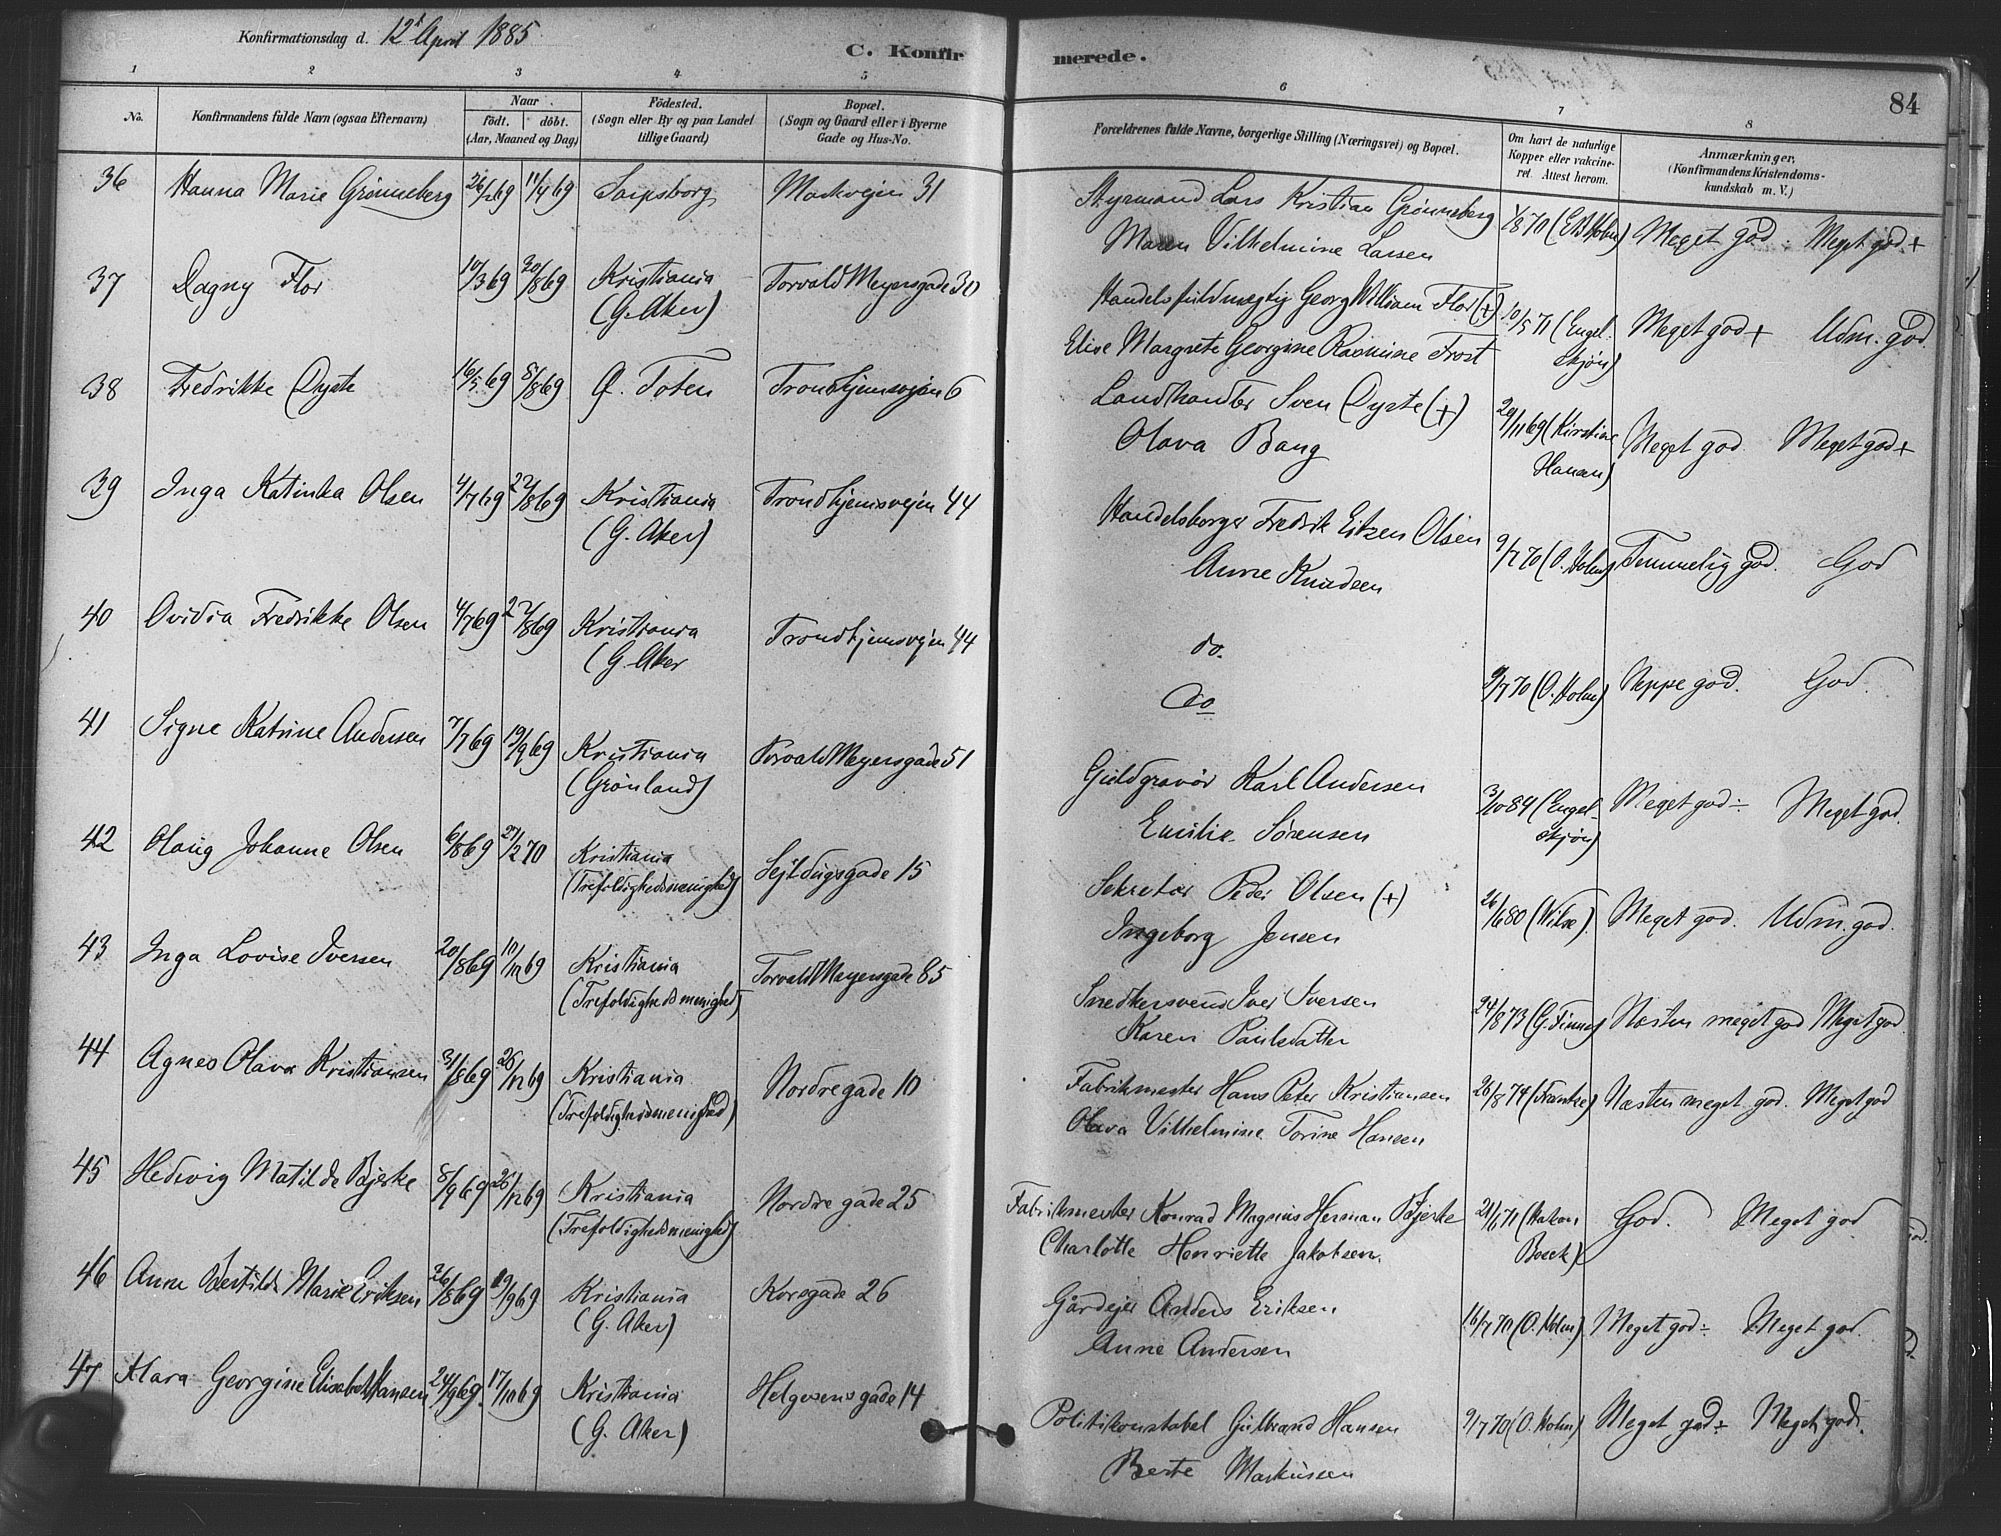 Konfirmationsdag d. 12t April 1885
C. Konfirmerede.
84
1 2 3 4 5 6 7 8
No.
Konfirmandens fulde Navn (ogsaa Efternavn)
Naar
Födt. döbt.
(Aar, Maaned og Dag)
Födested.
(Sogn eller By og paa Landet
tillige Gaard)
Bopæl.
(Sogn og Gaard eller i Byerne
Gade og Hus-No.
Forældrenes fulde Navne, borgerlige Stilling (Næringsvei) og Bopæl.
Om havt de naturlige
Kopper eller vakcine-
ret. Attest herom.
Anmærkninger,
(Konfirmandens Kristendoms-
kundskab m. V.)
36 Hanna Marie Grønneberg 26/2 69 11/4 69 Sarpsborg Markvejen 31 Styrmand Lars Kristian Grønneberg 1/8 70 (E. Holm) Meget god. Meget god +
Maren Vilhelmine Larsen
37 Dagny Flor 10/3 69 20/8 69 Kristiania Torvald Meyersgade 30 Handelsfuldmægtig Georg William Flor (+) 10/5 71 (Engel- Meget god + Udm. god.
(G. Aker) Elise Margrete Georgine Rasmine Frost Skjøn)
38 Fredrikke Dyste 16/5 69 8/8 69 Ø. Toten Trondhjemsvejen 6 Landhandler Sven Dyste (+) 29/11 69 (Kirstine Meget god. Meget god +
Olava Bang Hansen)
39 Inga Katinka Olsen 4/7 69 22/8 69 Kristiania Trondhjemsvejen 44 Handelsborger Fredrik Olsen 9/7 70 (O. Holm) Temmelig god. God
(G. Aker) Anne Knudsen
40 Ovidia Fredrikke Olsen 4/7 69 22/8 69 Kristiania Trondhjemsvejen 44 do. 9/7 70 (O. Holm) Neppe god. God.
(G. Aker do
41 Signe Katrine Andersen 7/7 69 19/9 69 Kristiania Torvald Meyersgade 51 Guldgravør Karl Andersen 3/10 84 (Engel- Meget god ÷ Meget god.
(Grønland) Emilie Sørensen Skjøn)
42 Olaug Johanne Olsen 6/8 69 27/2 70 Kristiania Sejldugsgade 15 Sekretær Peder Olsen (+) 26/6 80 (Wilse). Meget god. Udm. god.
(Trefoldighedsmenighed) Ingeborg Jensen
43 Inga Lovise Iversen 20/8 69 10/10 69 Kristiania Torvald Meyersgade 85 Snedkersvend Iver Iversen 24/8 73 (G. Finne) Næsten meget god Meget god.
(Trefoldighedsmenighed) Karen Paulsdatter
44 Agnes Olava Kristiansen 31/8 69 26/12 69 Kristiania Nordregade 10 Fabrikmester Hans Peter Kristiansen 26/8 74 (Frantze) Næsten meget god. Meget god
(Trefoldighedsmenighed) Olava Vilhelmine Torine Hansen
45 Hedvig Matilde Bjerke 8/9 69 26/12 69 Kristiania Nordregade 25 Fabrikmester Konrad Magnus Herman Bjerke 21/6 71 (Hakon God. Meget god
(Trefoldighedsmenighed) Charlotte Henriette Jakobsen. Boeck)
46 Anna Bertilde Marie Eriksen 26/8 69 19/9 69 Kristiania Korsgade 26 Gårdejer Anders Eriksen 16/7 70 (O. Holm) Meget god ÷ Meget god.
(G. Aker) Anne Andersen
47 Klara Georgine Elisabet Hansen 24/9 69. 17/10 69 Kristiania Helgesensgade 14 Politikonstabel Gulbrand Hansen 9/7 70 (O. Holm) Meget god ÷ Meget god.
(G. Aker) Berte Markussen